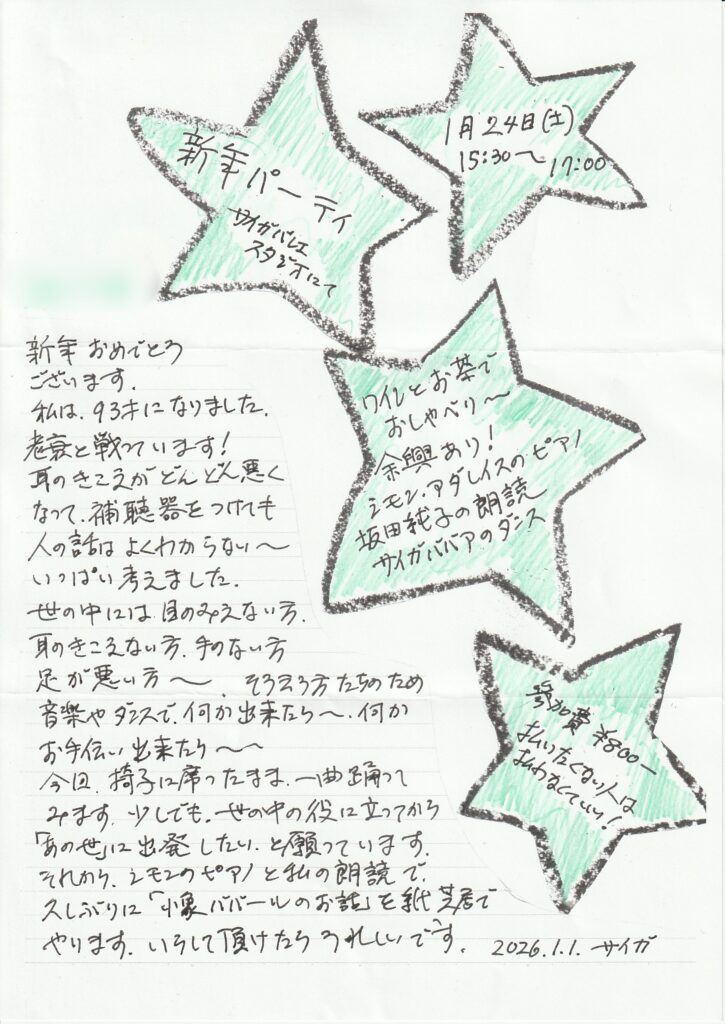 新年パーティ
サイガバレエ
スタジオにて
1月24日(土)
15:30〜17:00
ワインとお茶で
おしゃべり〜
余興あり!
シモン・アダレイスのピアノ
坂田純子の朗読
サイガババアのダンス
参加費 ¥800ー
払いたくない人は
払わなくていい!
新年おめでとう
ございます.
私は、93才になりました.
老衰と戦っています!
耳のきこえがどんどん悪く
なって、補聴器をつけても
人の話はよくわからない〜
いっぱい考えました.
世の中には、目のみえない方.
耳のきこえない方、手のない方
足が悪い方〜、そう云う方たちのため
音楽やダンスで、何か出来たら〜、何か
お手伝い出来たら〜〜
今回、椅子に席ったまま、一曲踊って
みます、少しでも、世の中の役に立ってから
「あの世」に出発したい、と願っています.
それから、シモンのピアノと私の朗読で、
久しぶりに「小象ババールのお話」を紙芝居で
やります、いらして頂けたらうれしいです.
2026.1.1. サイガ